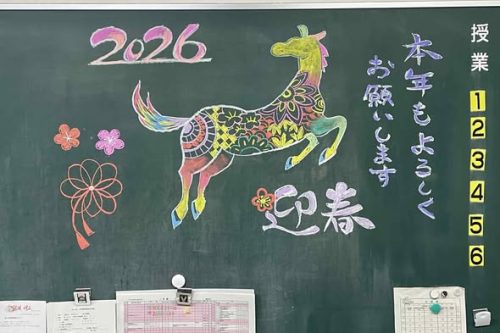 2026
本年もよろしく
お願いします
迎春
授業
1
2
3
4
5
6